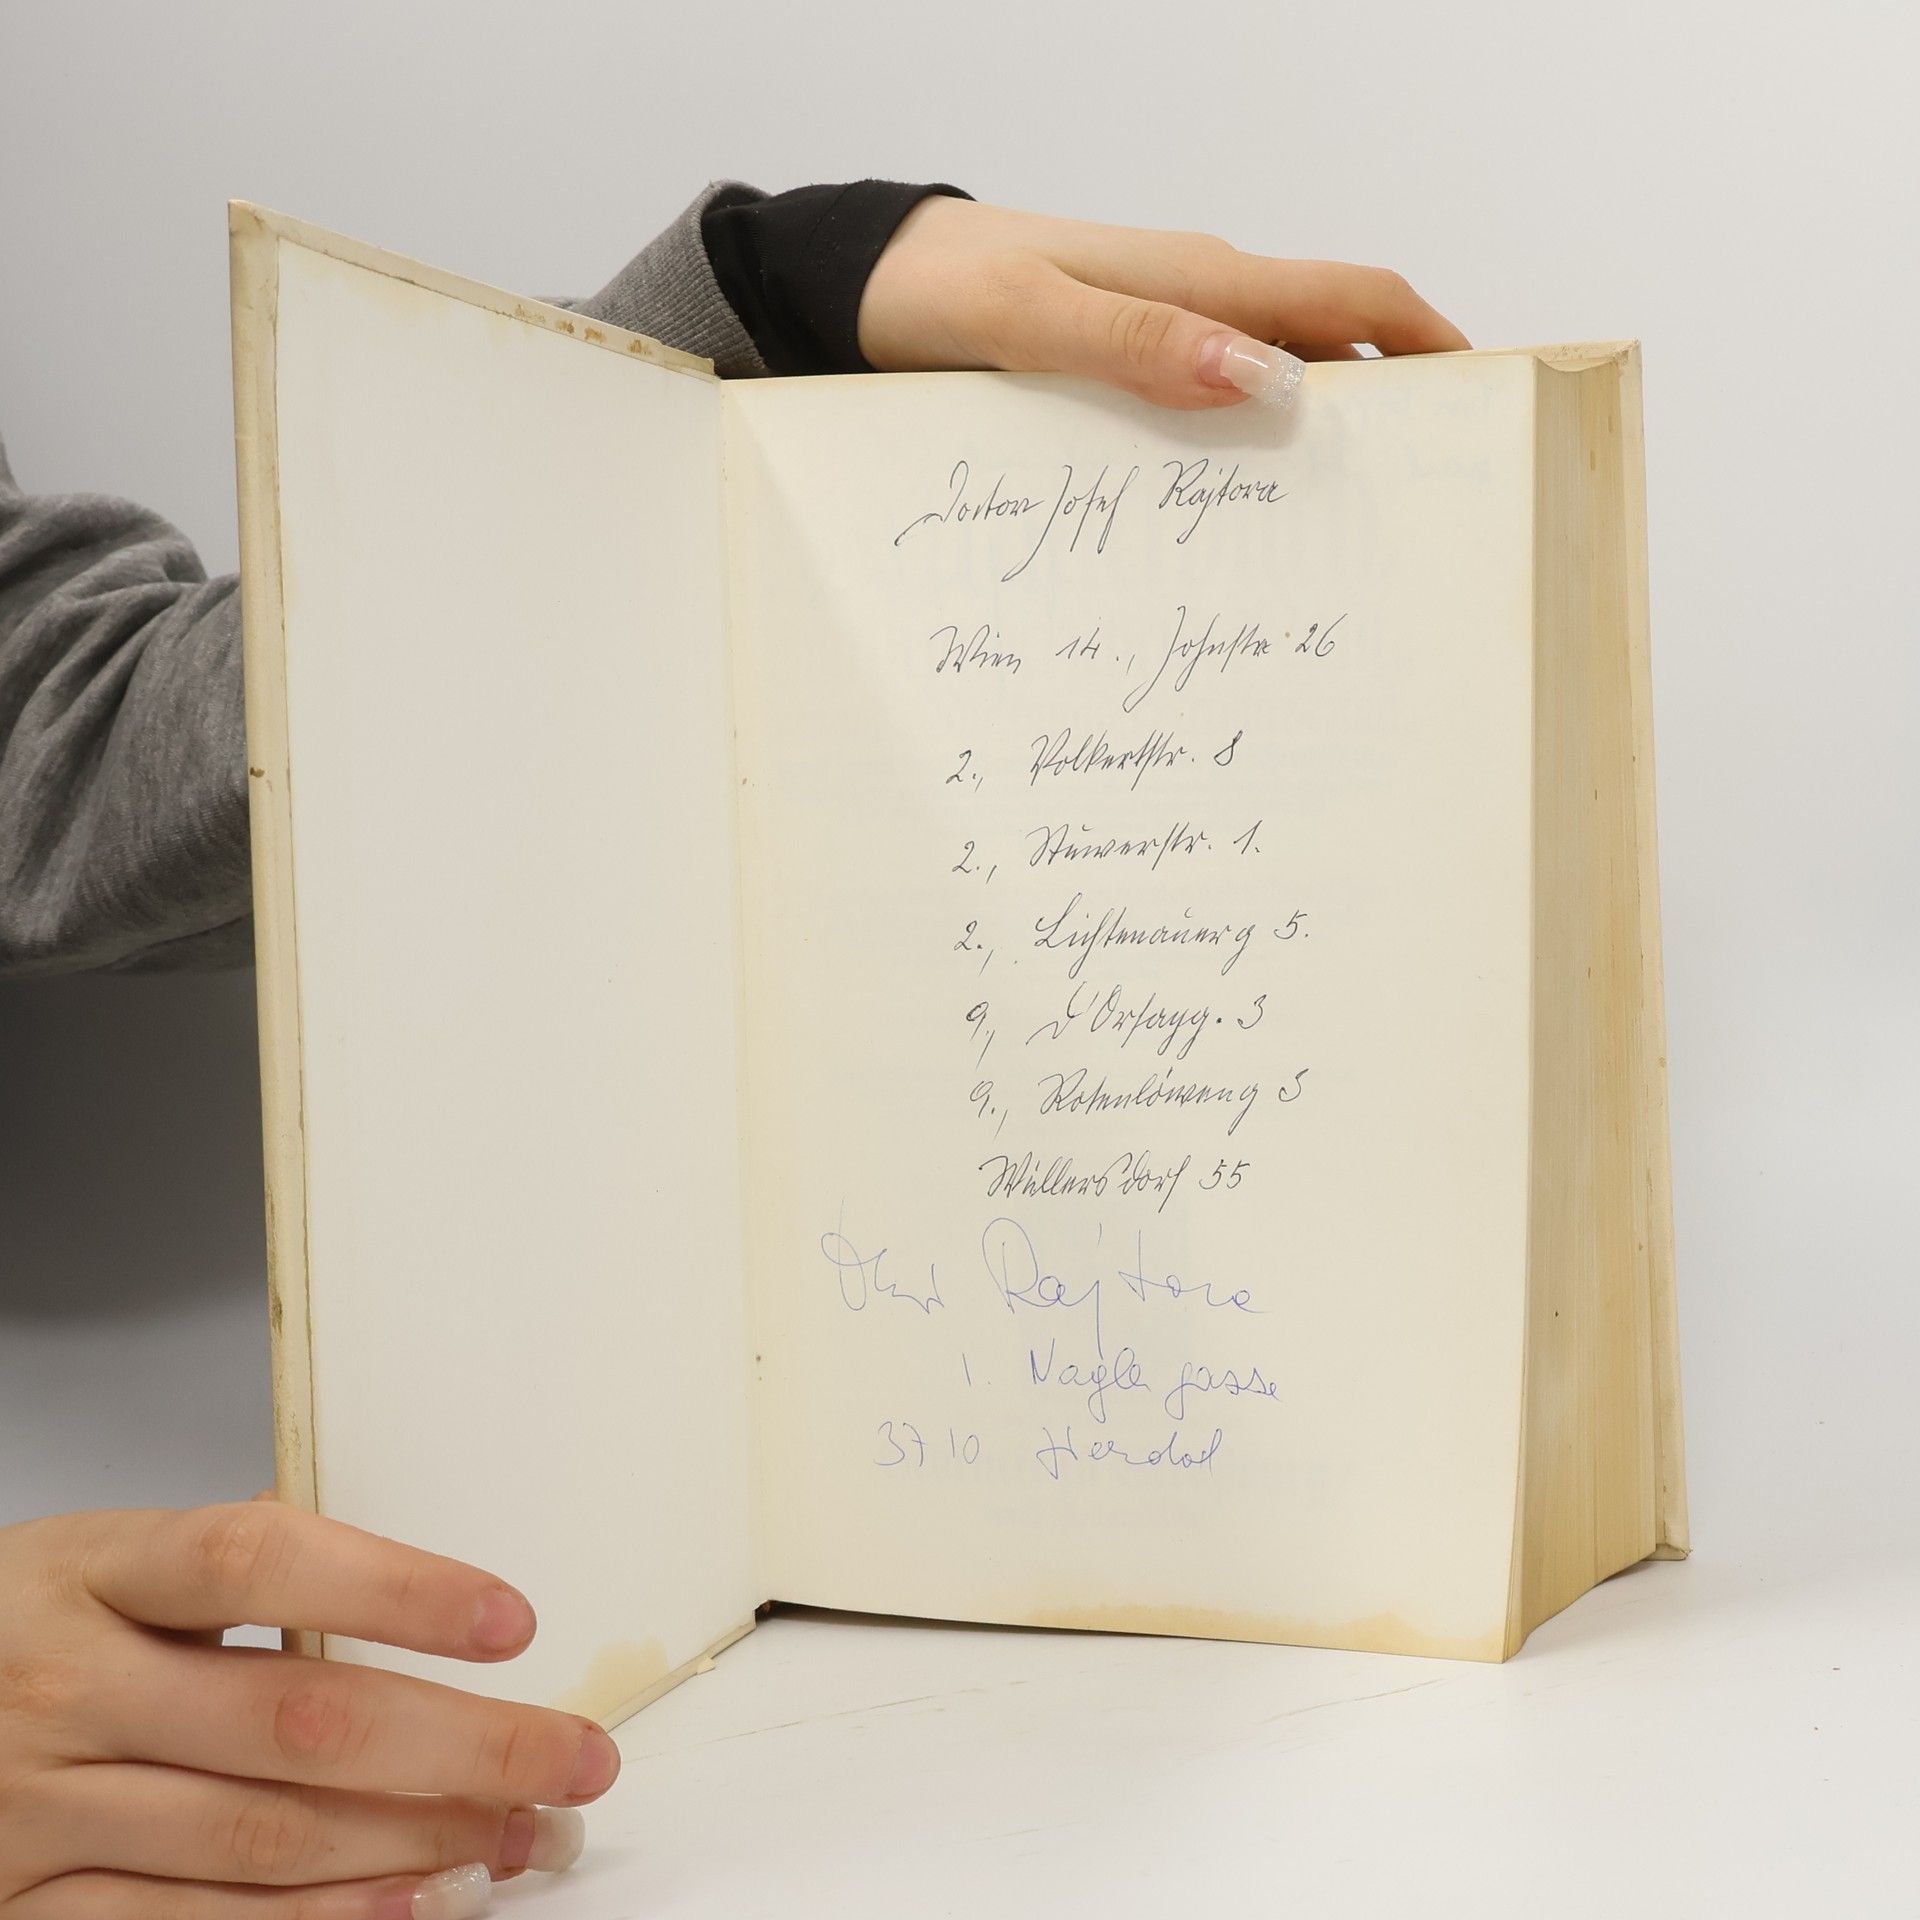 Doctor Josef Rajtora
Wien 14., Johnstr. 26
2., Volkertstr. 8
2., Stuwerstr. 1.
2., Lichtenauerg 5.
9., D'Orsayg. 3
9., Rotenlöweng 3
Wullersdorf 55
Rajtora
1. Nagler gasse
3710